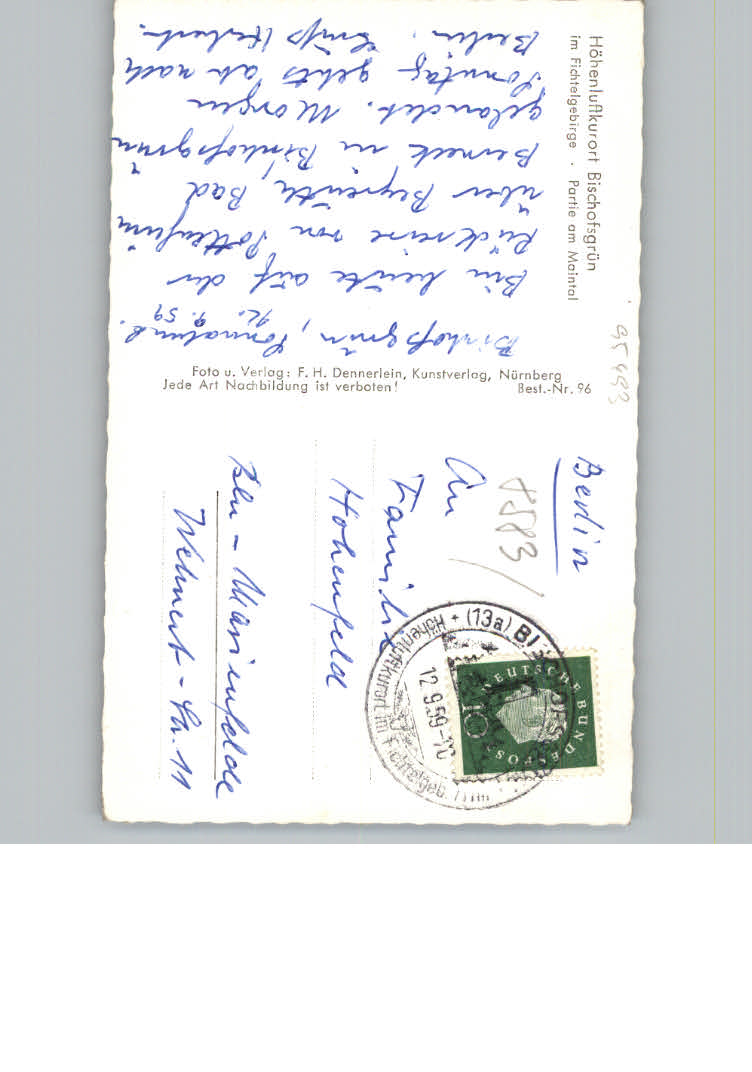 Höhenluftkurort Bischofsgrün
im Fichtelgebirge · Partie am Maintal
Bischofsgrün, Sonnabend.
9. 59
Bin heute auf der
Rückreise von Pottenstein
über Bayreuth, Bad
Berneck in Bischofsgrün
gelandet. Morgen
Sonntag gehts ab nach
Berlin. Gruß Herbert.
Foto u. Verlag: F. H. Dennerlein, Kunstverlag, Nürnberg
Jede Art Nachbildung ist verboten! Best.-Nr. 96
95493
Berlin
An
Familie
Hohenfeld
Bln - Marienfelde
Wehnert-Str. 11
(13a) BISCHOFSGRÜN
12.9.59-10
Höhenluftkurort im Fichtelgebirge
DEUTSCHE BUNDESPOST
10